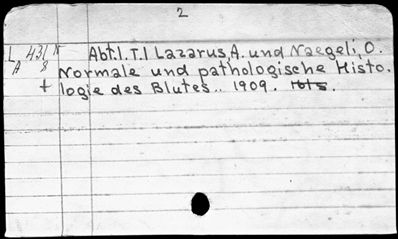 2
L 431 N Abt.I. T.I Lazarus, A. und Naegeli, O.
A 8 Normale und pathologische Histo.
t logie des Blutes.. 1909.